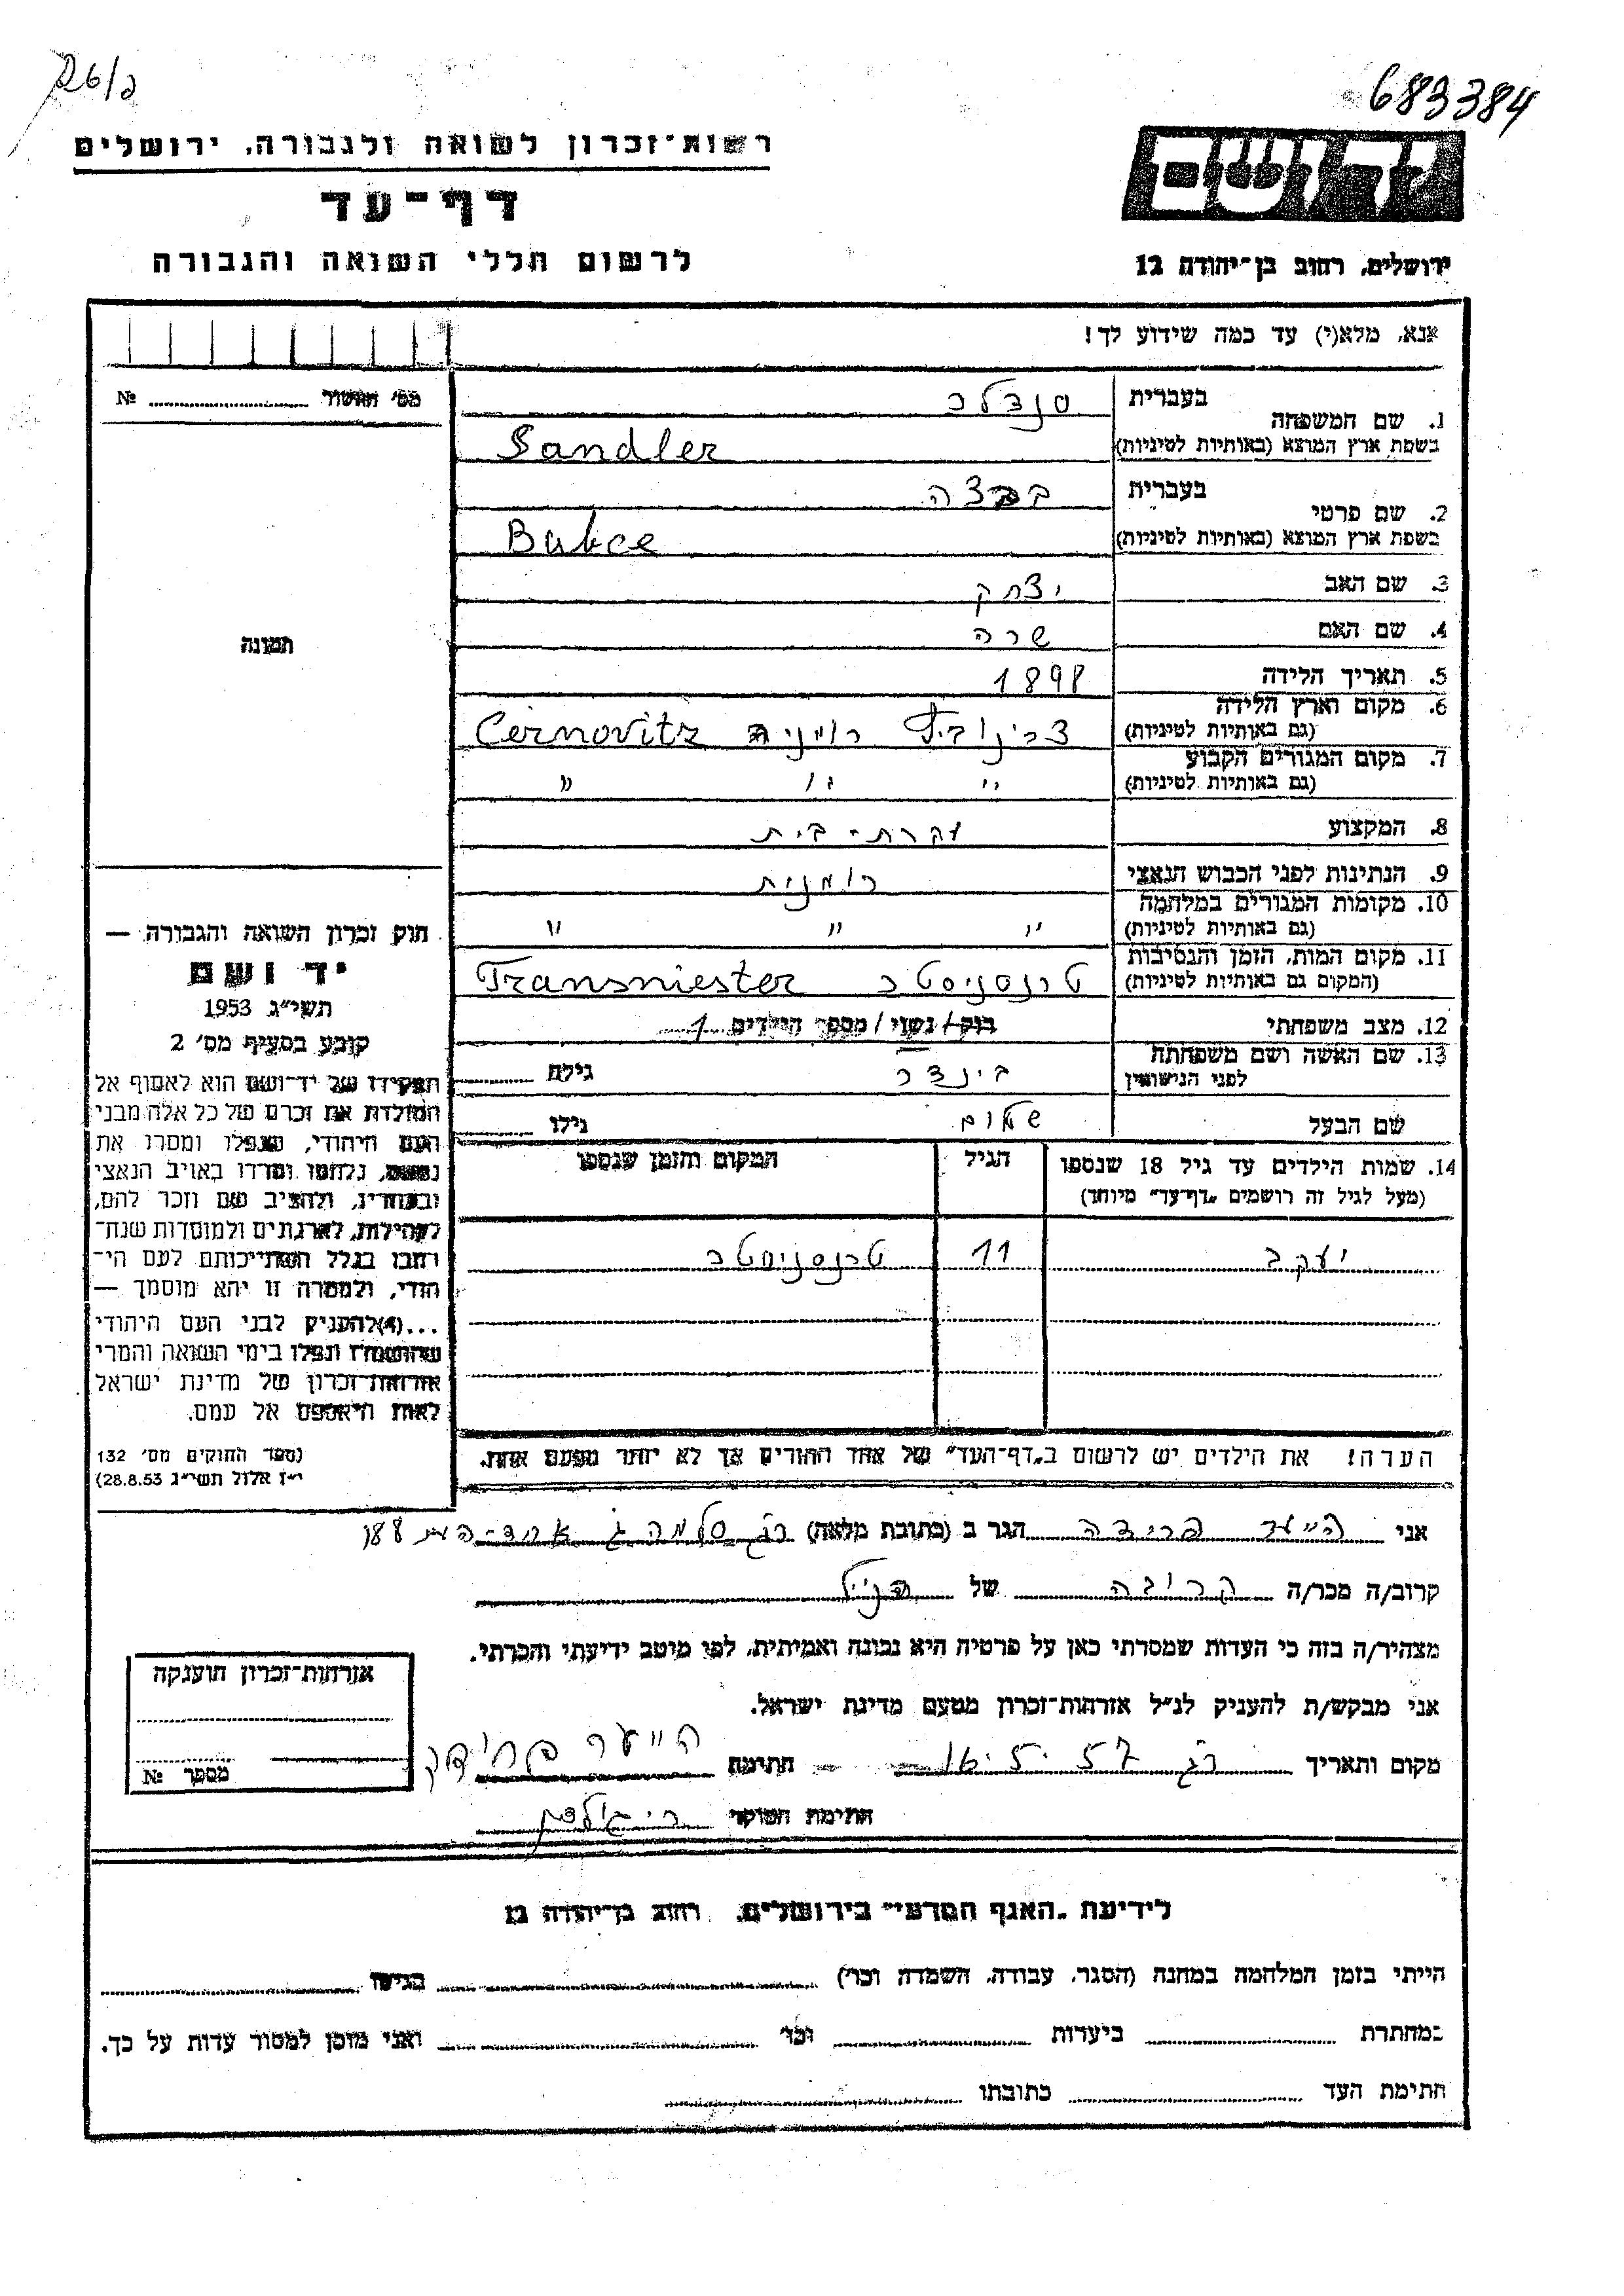 683384
רשות־זכרון לשואה ולגבורה, ירושלים
דף־עד
לרשום חללי השואה והגבורה
ידושם
ירושלים, רחוב בן־יהודה 12
אנא, מלא(י) עד כמה שידוע לך!
מס' האשור № 
1. שם המשפחה
בעברית סנדלר
בשפת ארץ המוצא (באותיות לטיניות) Sandler
2. שם פרטי
בעברית
בשפת ארץ המוצא (באותיות לטיניות) Babce
3. שם האב יצחק
4. שם האם שרה
5. תאריך הלידה 1898
6. מקום וארץ הלידה (גם באותיות לטיניות) רומניה Cernovitz
7. מקום המגורים הקבוע (גם באותיות לטיניות) " " "
8. המקצוע עקרת-בית
9. הנתינות לפני הכבוש הנאצי רומנית
10. מקומות המגורים במלחמה (גם באותיות לטיניות) " " "
11. מקום המות, הזמן והנסיבות (המקום גם באותיות לטיניות) טרנסניסטר Transniester
12. מצב משפחתי רוק/נשוי/מספר הילדים 1
13. שם האשה ושם משפחתה לפני הנישואין בינדר גילה
שם הבעל שלום גילו
14. שמות הילדים עד גיל 18 שנספו (מעל לגיל זה רושמים "דף־עד" מיוחד)
הגיל
המקום והזמן שנספו
יעקב 11 טרנסניסטר
הערה! את הילדים יש לרשום ב"דף־העד" של אחד ההורים אך לא יותר מפעם אחת.
תמונה
חוק זכרון השואה והגבורה —
יד ושם
תשי"ג 1953
קובע בסעיף מס' 2
תפקידו של יד־ושם הוא לאסוף אל
המולדת את זכרם של כל אלה מבני
העם היהודי, שנפלו ומסרו את
נפשם, נלחמו ומרדו באויב הנאצי
ובעוזריו, ולהציב שם וזכר להם,
לקהילות, לארגונים ולמוסדות שנח־
רבו בגלל השתייכותם לעם הי־
הודי, ולמטרה זו יהא מוסמך —
...(4)להעניק לבני העם היהודי
שהושמדו ונפלו בימי השואה והמרי
אזרחות־זכרון של מדינת ישראל
לאות היאספם אל עמם.
(ספר החוקים מס' 132
י"ז אלול תשי"ג 28.8.53)
אני פרידה הגר ב (כתובת מלאה) 188
קרוב/ה מכר/ה קרובה של הנ"ל
מצהיר/ה בזה כי העדות שמסרתי כאן על פרטיה היא נכונה ואמיתית, לפי מיטב ידיעתי והכרתי.
אני מבקש/ת להעניק לנ"ל אזרחות־זכרון מטעם מדינת ישראל.
מקום ותאריך רג 16.5.57 חתימה
חתימת הפוקד
אזרחות־זכרון הוענקה
מספר №
לידיעת "האגף המדעי" בירושלים, רחוב בן־יהודה 12
הייתי בזמן המלחמה במחנה (הסגר, עבודה, השמדה וכו') בגיטו
במחתרת ביערות וכו' ואני מוכן למסור עדות על כך.
חתימת העד כתובתו